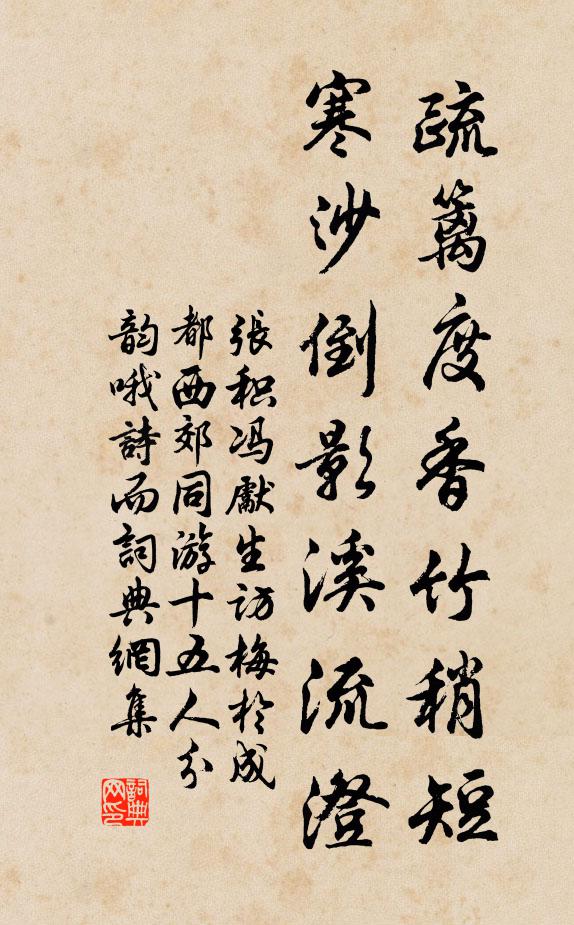 疏篱度香竹稍短
寒沙倒影溪流澄
張积冯獻生訪梅於成
都西郊同游十五人分
韵哦詩而詞典網集
詞典网印